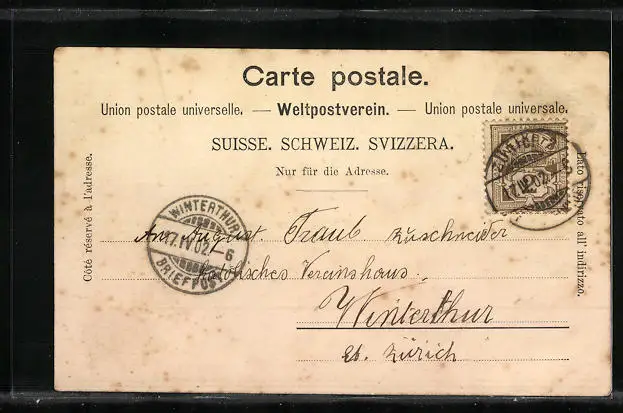 Carte postale.
Union postale universelle. — Weltpostverein. — Union postale universale.
SUISSE. SCHWEIZ. SVIZZERA.
Nur für die Adresse.
Côté réservé à l'adresse.
Lato riservato all'indirizzo.
WINTERTHUR
17.IV.02.–6
BRIEFPOST
17.IV.02.–6
An August Traub Zuschneider
Katolisches Vereinshaus.
Winterthur
Kt. Zürich